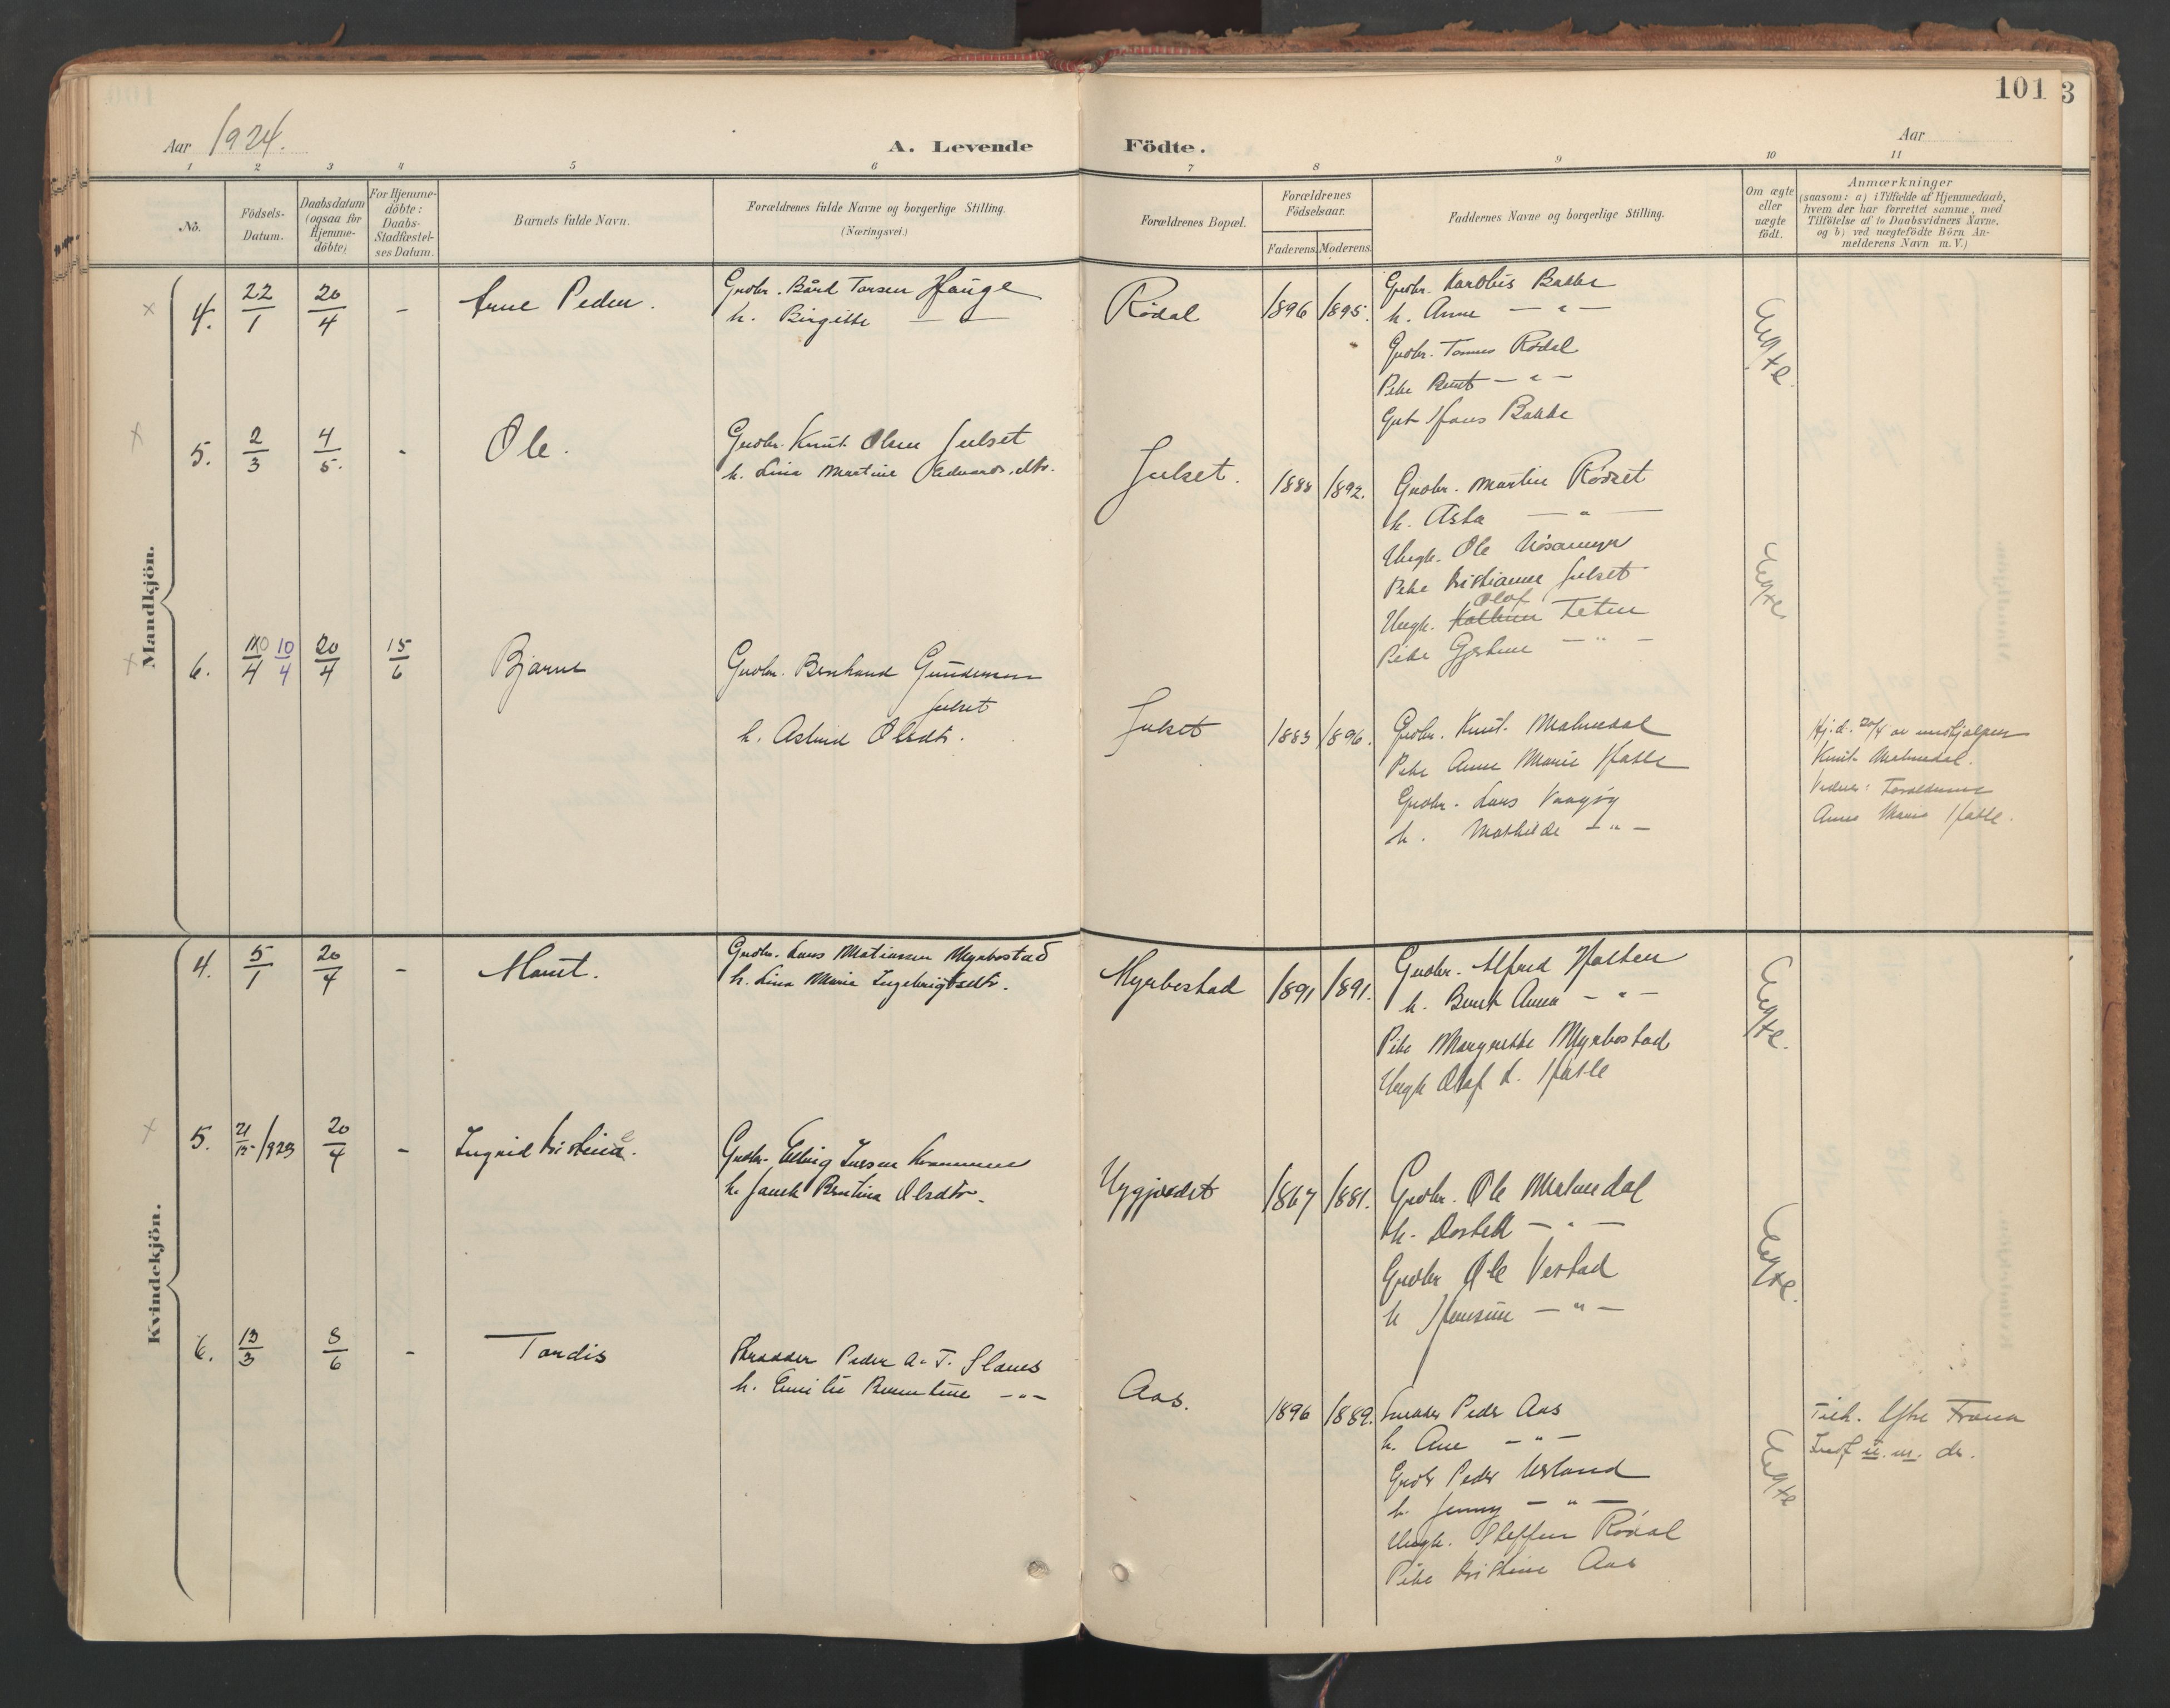 101 3
Aar 1924.
A. Levende Födte.
Aar
1 2 3 4 5 6 7 8 9 10 11
No.
Födsels-Datum.
Daabsdatum (ogsaa for Hjemme-döbte)
For Hjemme-döbte: Daabs-Stadfæstel-ses Datum.
Barnets fulde Navn.
Forældrenes fulde Navne og borgerlige Stilling.
(Næringsvei.)
Forældrenes Bopæl.
Forældrenes Födselsaar.
Faderens. Moderens.
Faddernes Navne og borgerlige Stilling.
Om ægte eller uægte födt.
Anmærkninger
(saasom: a) i Tilfælde af Hjemmedaab,
hvem der har forrettet samme, med
Tilföielse af to Daabsvidners Navne,
og b) ved uægtefödte Börn An-
melderens Navn m. V.)
Mandkjön.
4. 22/1 20/4 - Arne Peder.
Grdbr. Bård Torsen Hauge
h. Birgitte — —
Rödal 1896 1895.
Grdbr. Karolus Bakke
h. Anne — " —
Grdbr. Tomas Rödal
Pike Berit — " —
Gut Hans Bakke
Ægte.
5. 2/3 4/5. - Ole.
Grdbr. Knut Olsen Julset
h. Lina Martine Edvardsdtr.
Julset. 1888 1892.
Grdbr. Martin Rödset
h. Asta — " —
Ungk. Ole
Pike Kristianne Julset
Olaf
Ungk. Teten
Pike — " —
Ægte
6. 10/4 10/4 20/4 15/6 Bjarne
Grdbr. Bernhard Gundersen
Julset
h. Astrid Olsdtr.
Julset 1883 1896.
Grdbr. Knut Malmedal
Pike Anne Marie Hatle
Grdbr. Lars Vaagöy
h. Mathilde — " —
Hj.d. 20/4 av
Knut Malmedal.
Vidner: Forældrene
Anne Marie Hatle.
Kvindekjön.
4. 5/1 20/4 - Marit.
Grdbr. Lars Matiassen Myrbostad
h. Lina Marie Ingebrigtsdtr.
Myrbostad 1891 1891.
Grdbr. Alfred Holten
h. Berit Anna — " —
Pike Margrethe Myrbostad
Ungk Olaf L. Hatle
Ægte.
5. 21/12 1923 20/4 - Ingrid Kristine.
Grdbr. Elling Iversen
h. Bentina Olsdtr.
1867 1881.
Grdbr. Ole Malmedal
h. — " —
Grdbr Ole Vestad
h Hansine — " —
Ægte.
6. 13/3 8/6 - Tordis
Skrædder Peder A. T.
h. Emilie Berntine — " —
Aas. 1896 1889.
Peder Aas
h. Ane — " —
Grdbr Peder
h. Jenny — " —
Ungk. Steffen Rödal
Pike Kristine Aas
Ægte
Ytre Fræna